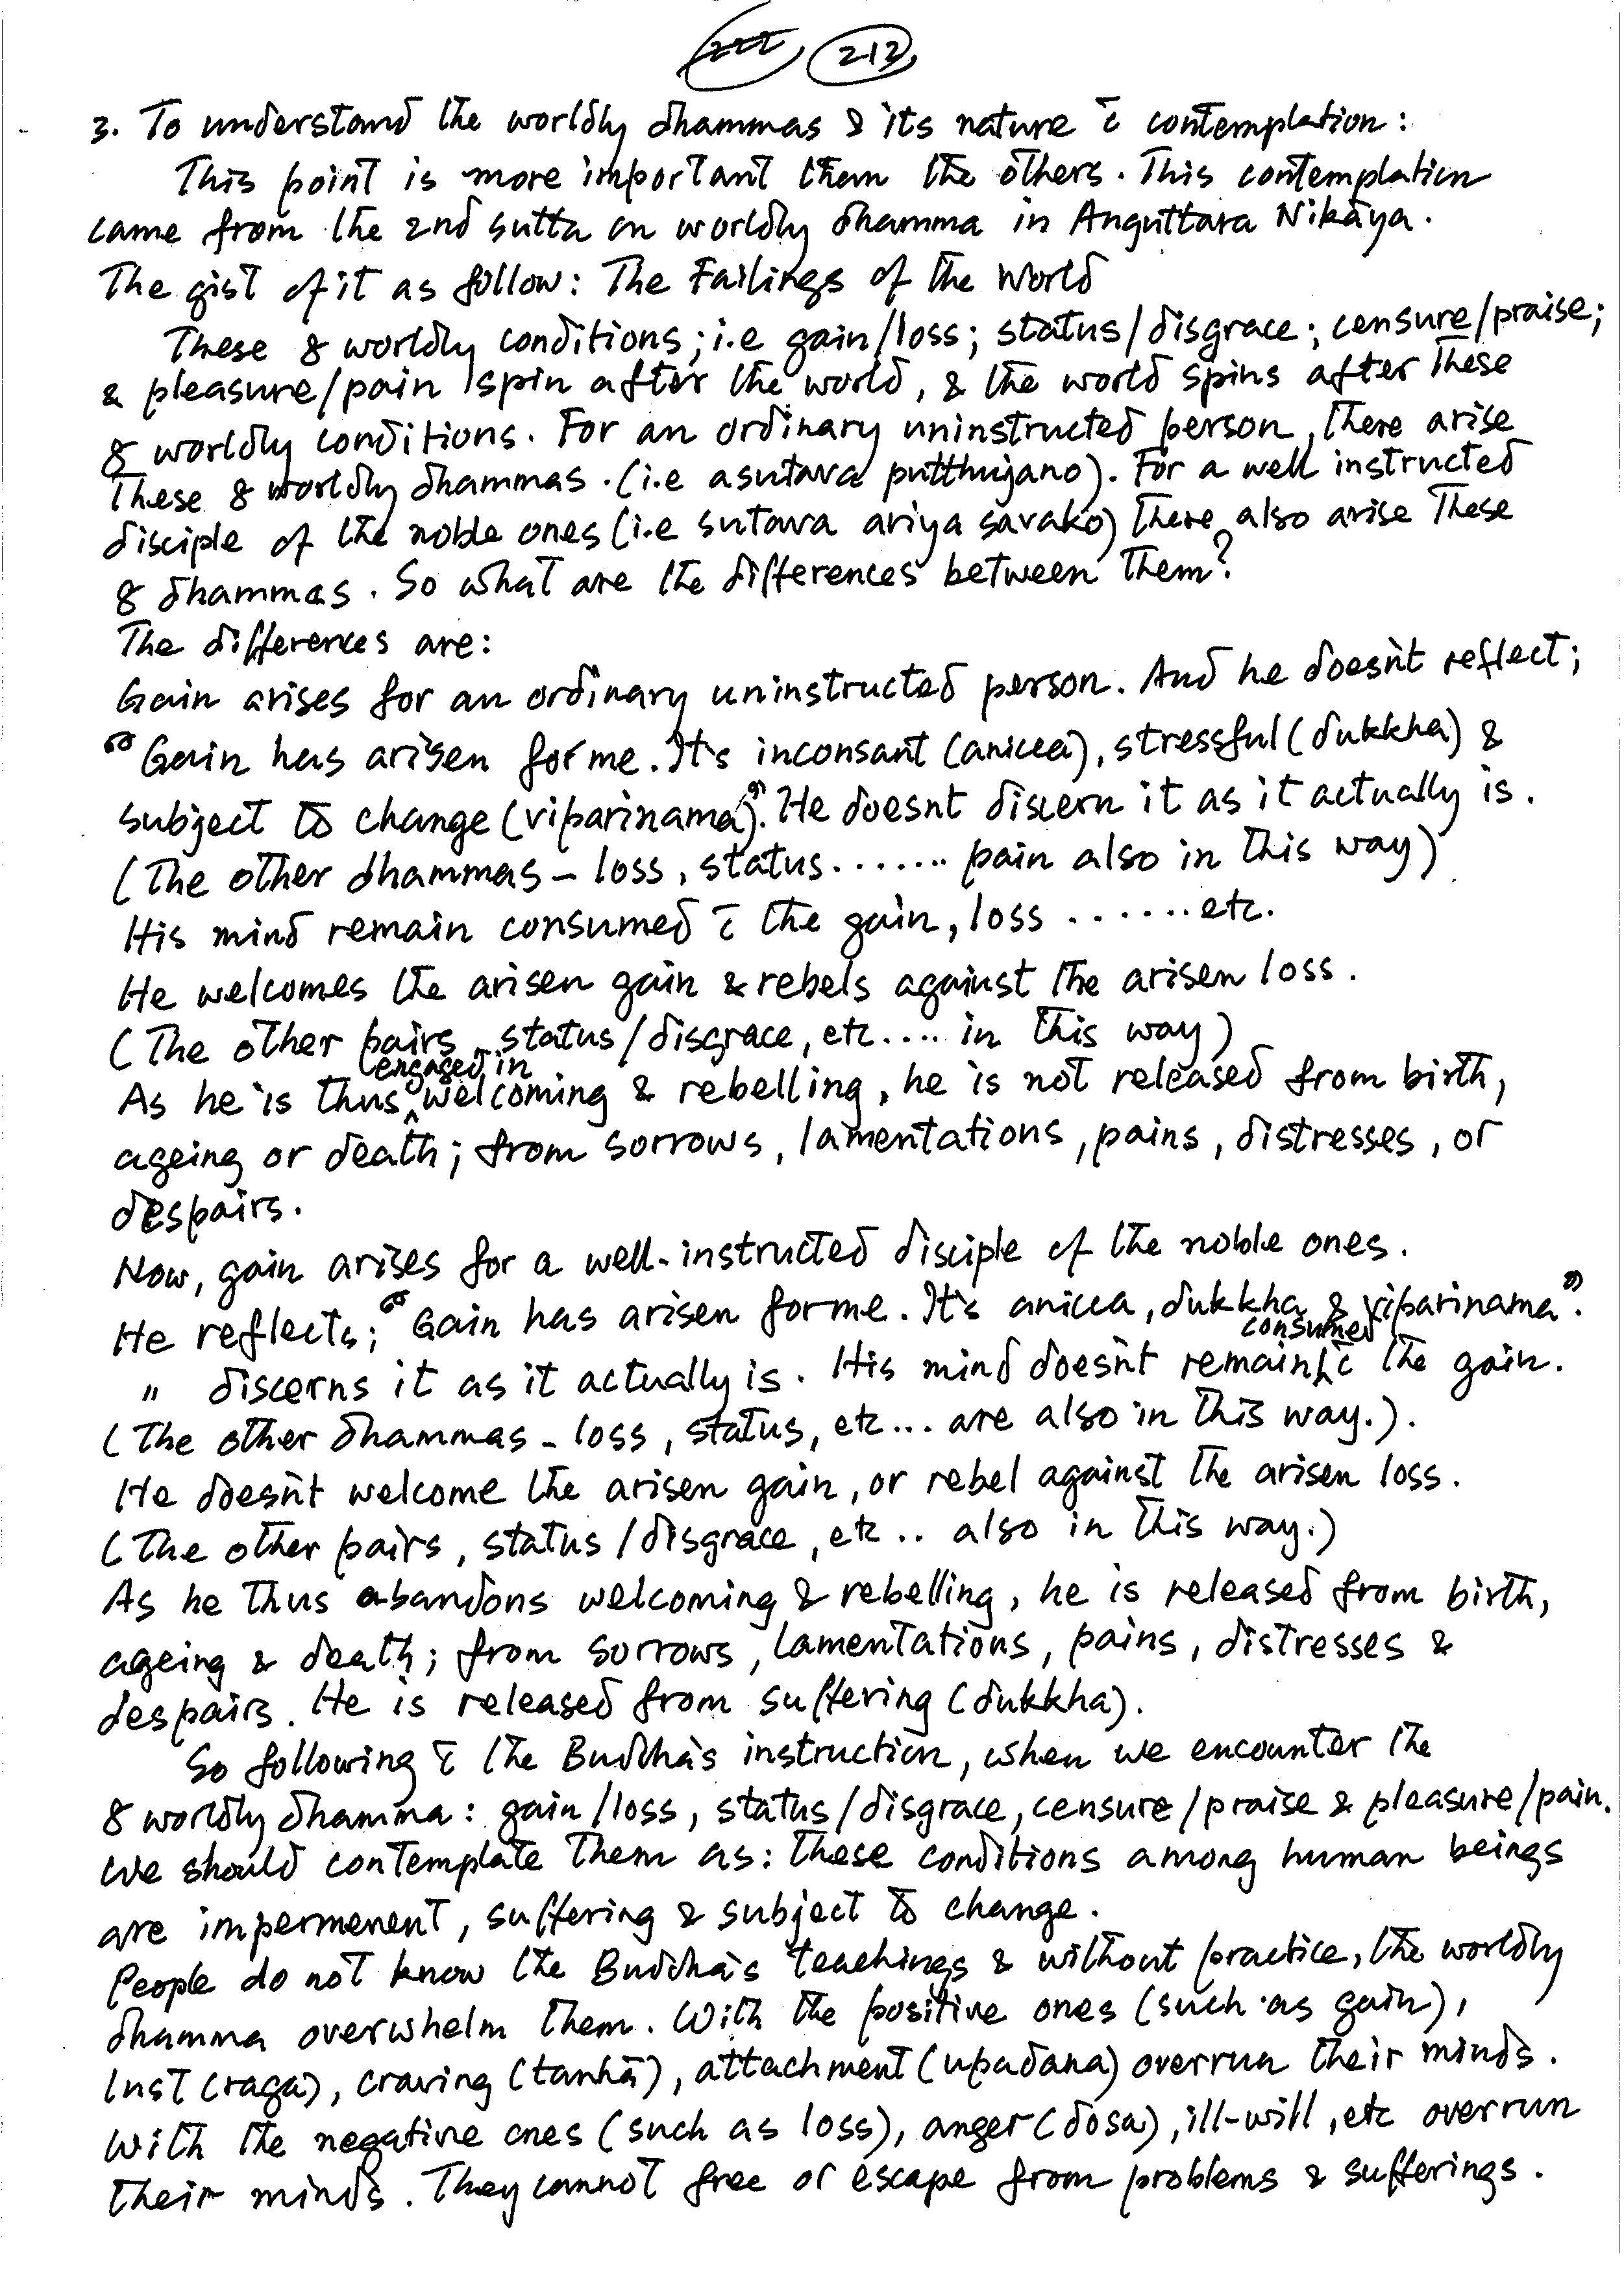 213
3. To understand the worldly dhammas & its nature c̄ contemplation:
This point is more important them the others. This contemplation
came from the 2nd sutta on worldly dhamma in Anguttara Nikāya.
The gist of it as follow: The Failings of the World
These 8 worldly conditions; i.e gain/loss; status/disgrace; censure/praise;
& pleasure/pain spin after the world, & the world spins after these
8 worldly conditions. For an ordinary uninstructed person, there arise
these 8 worldly dhammas. (i.e asutava putthujano). For a well instructed
disciple of the noble ones (i.e sutava ariya savako) there also arise these
8 dhammas. So what are the differences between them?
The differences are:
Gain arises for an ordinary uninstructed person. And he doesn't reflect;
"Gain has arisen for me. It's inconsant (anicca), stressful (dukkha) &
subject to change (viparinama)". He doesnt discern it as it actually is.
(The other dhammas – loss, status....... pain also in this way)
His mind remain consumed c̄ the gain, loss ...... etc.
He welcomes the arisen gain & rebels against the arisen loss.
(The other pairs, status/disgrace, etc.... in this way)
As he is thus engaged in welcoming & rebelling, he is not released from birth,
ageing or death; from sorrows, lamentations, pains, distresses, or
despairs.
Now, gain arises for a well-instructed disciple of the noble ones.
He reflects; "Gain has arisen for me. It's anicca, dukkha & viparinama".
" discerns it as it actually is. His mind doesn't remain consumed c̄ the gain.
(The other dhammas – loss, status, etc... are also in this way.).
He doesn't welcome the arisen gain, or rebel against the arisen loss.
(The other pairs, status/disgrace, etc.. also in this way.)
As he thus abandons welcoming & rebelling, he is released from birth,
ageing & death; from sorrows, lamentations, pains, distresses &
despairs. He is released from suffering (dukkha).
So following c̄ the Buddha's instruction, when we encounter the
8 worldly dhamma: gain/loss, status/disgrace, censure/praise & pleasure/pain.
We should contemplate them as: These conditions among human beings
are impermenent, suffering & subject to change.
People do not know the Buddha's teachings & without practice, the worldly
dhamma overwhelm them. With the positive ones (such as gain),
lust (raga), craving (tanhā), attachment (upadana) overrun their minds.
With the negative ones (such as loss), anger (dosa), ill-will, etc overrun
their minds. They cannot free or escape from problems & sufferings.